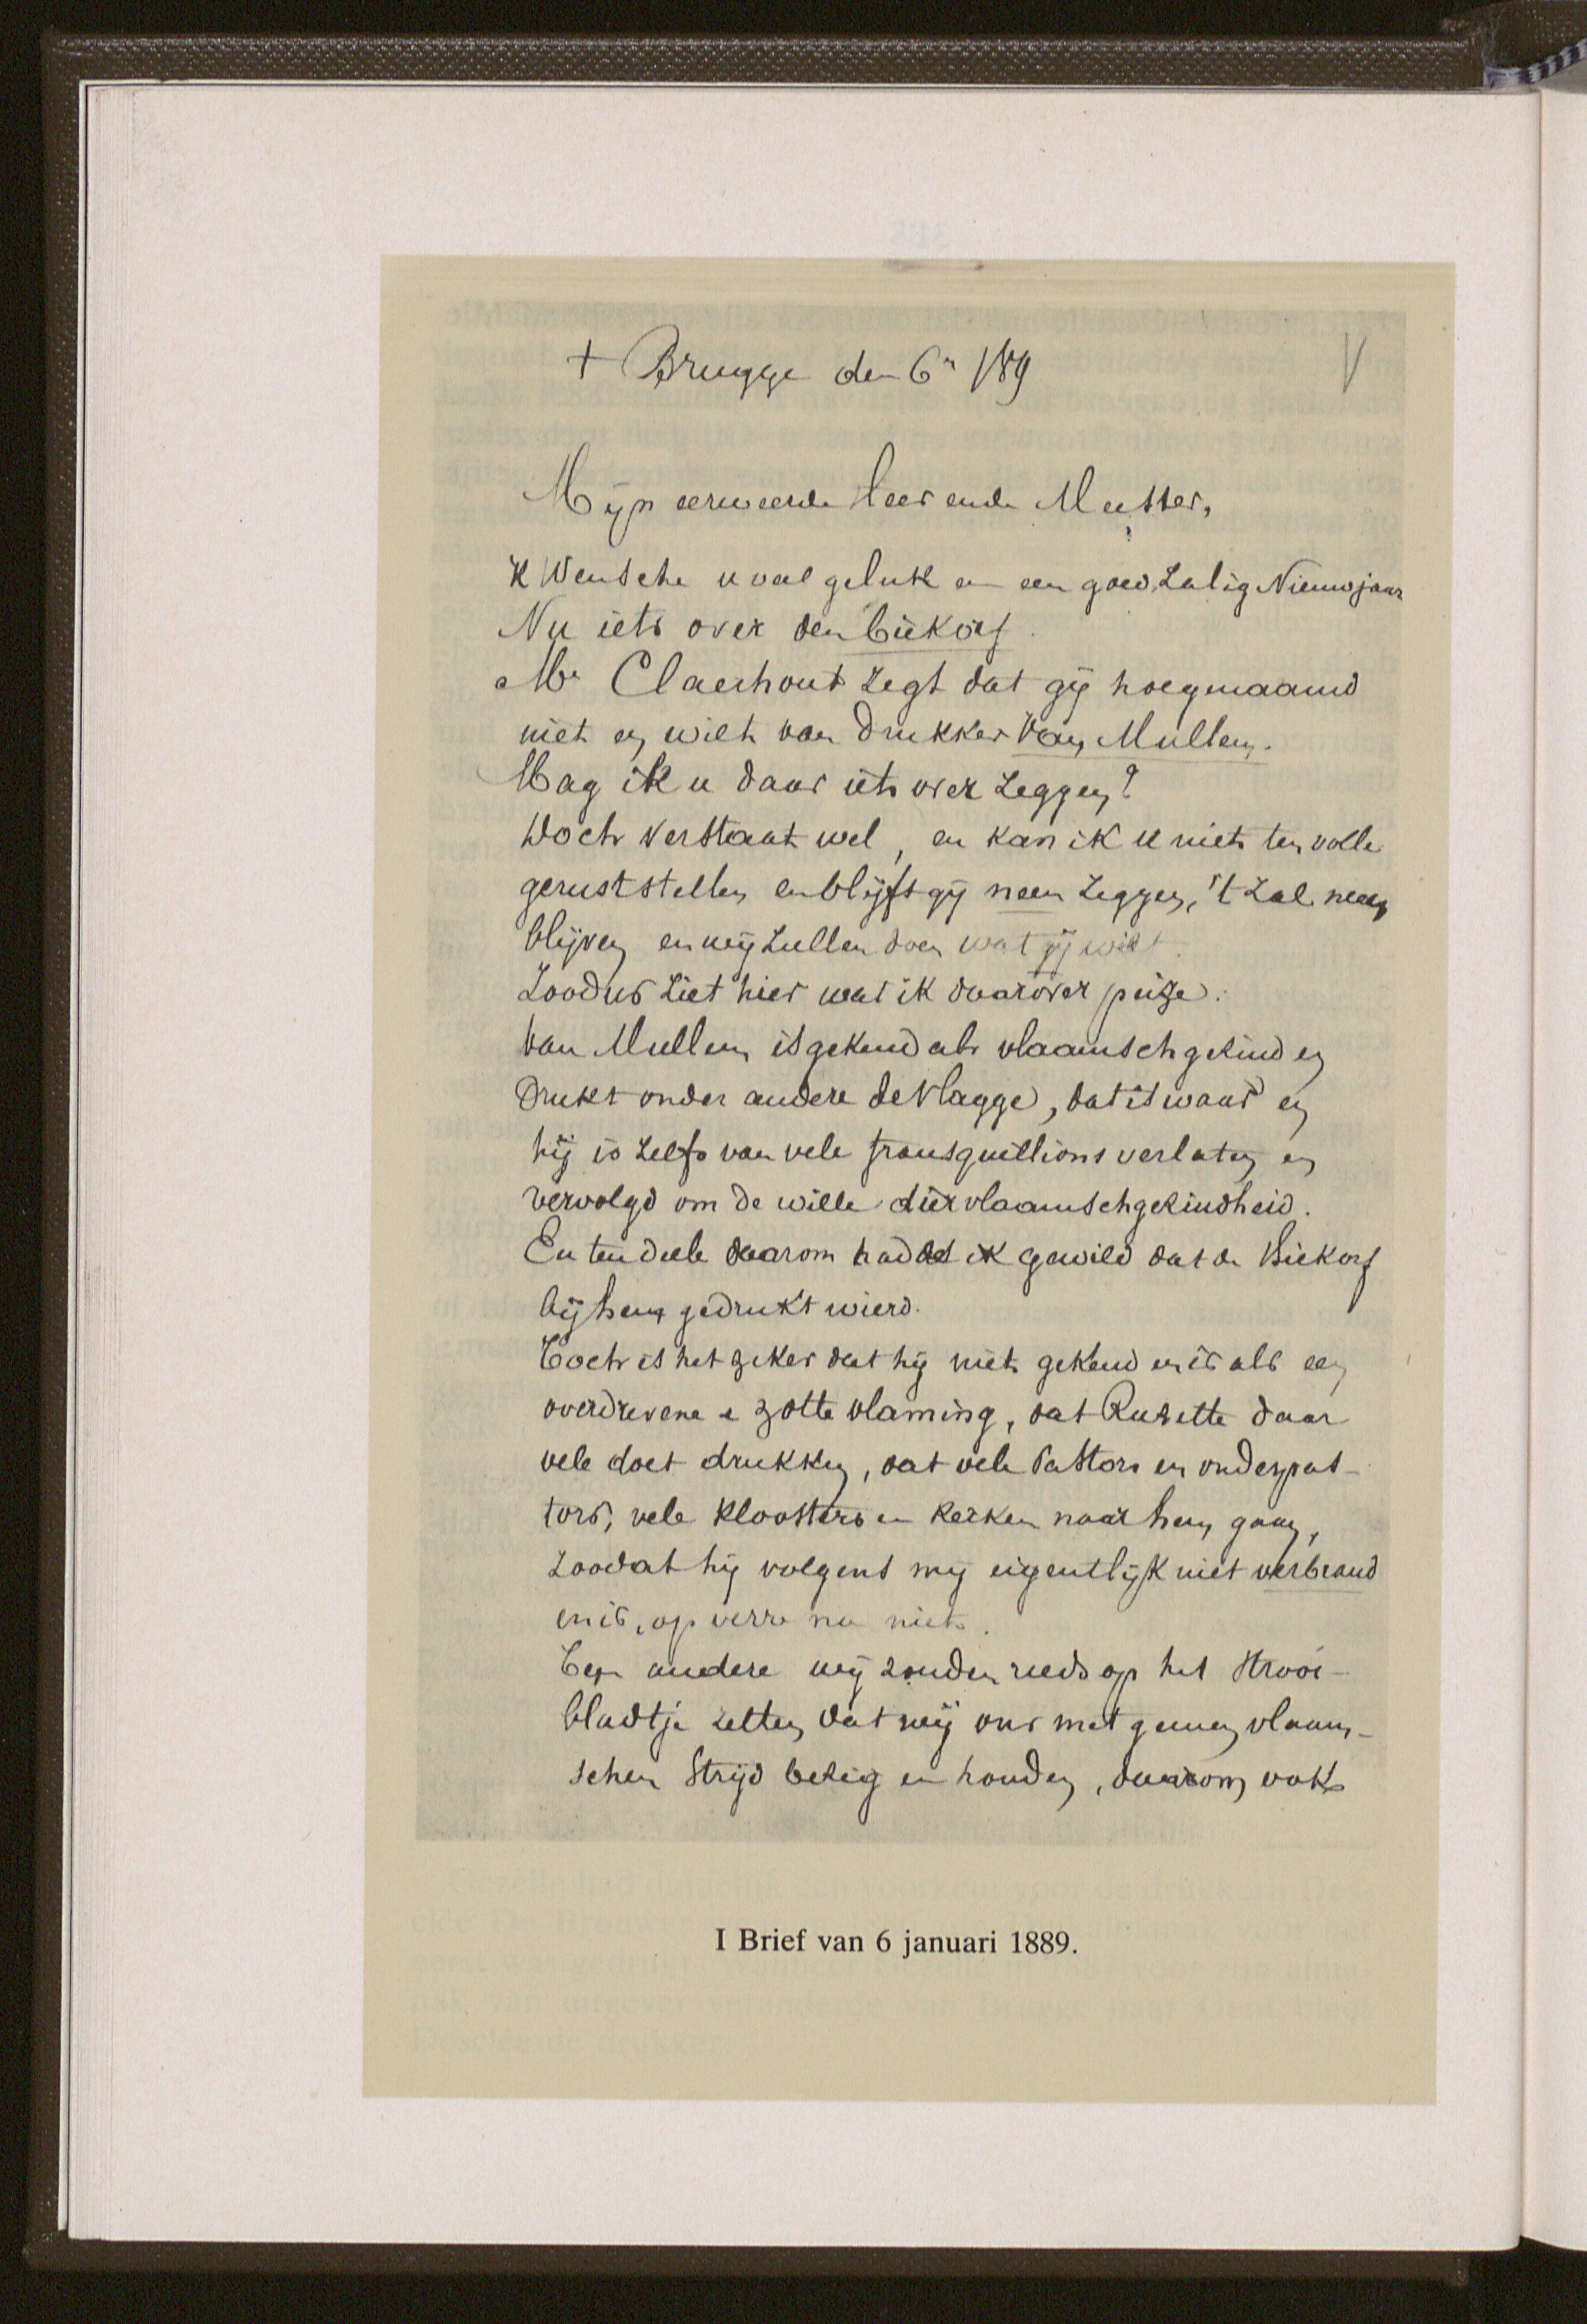 + Brugge den 6n 1/89
Mijn eerweerde Heer ende Meester,
'K Wensche u veel geluk en een goed, zalig Nieuwjaar
Nu iets over den biekorf.
Mr Claerhout zegt dat gij hoegenaamd
niet en wilt van drukker Van Mullem.
Mag ik u daar iets over zeggen?
Doch verstaat wel, en kan ik u niet ten volle
geruststellen en blijft gij neen zeggen, 't zal neen
blijven en wij zullen doen wat gij wilt.
Zoodus ziet hier wat ik daarover peize:
Van Mullem is gekend als vlaamschgezind en
drukt onder andere de Vlagge, dat is waar en
hij is zelfs van vele fransquillions verlaten en
vervolgd om de wille dier vlaamschgezindheid.
En ten deele daarom hadde ik gewild dat de Biekorf
bij hem gedrukt wierd.
Toch is het zeker dat hij niet gekend en is als een
overdrevene e zotte vlaming, dat Rusette daar
vele doet drukken, dat vele Pastors en onderpas-
tors, vele kloosters en kerken naar hem gaan,
zoodat hij volgens mij eigentlijk niet verbrand
en is, op verre na niet.
Ten andere wij zouden reeds op het strooi-
bladtje zetten dat wij ons met geenen vlaam-
schen strijd bezig en houden, daarom ook
I Brief van 6 januari 1889.